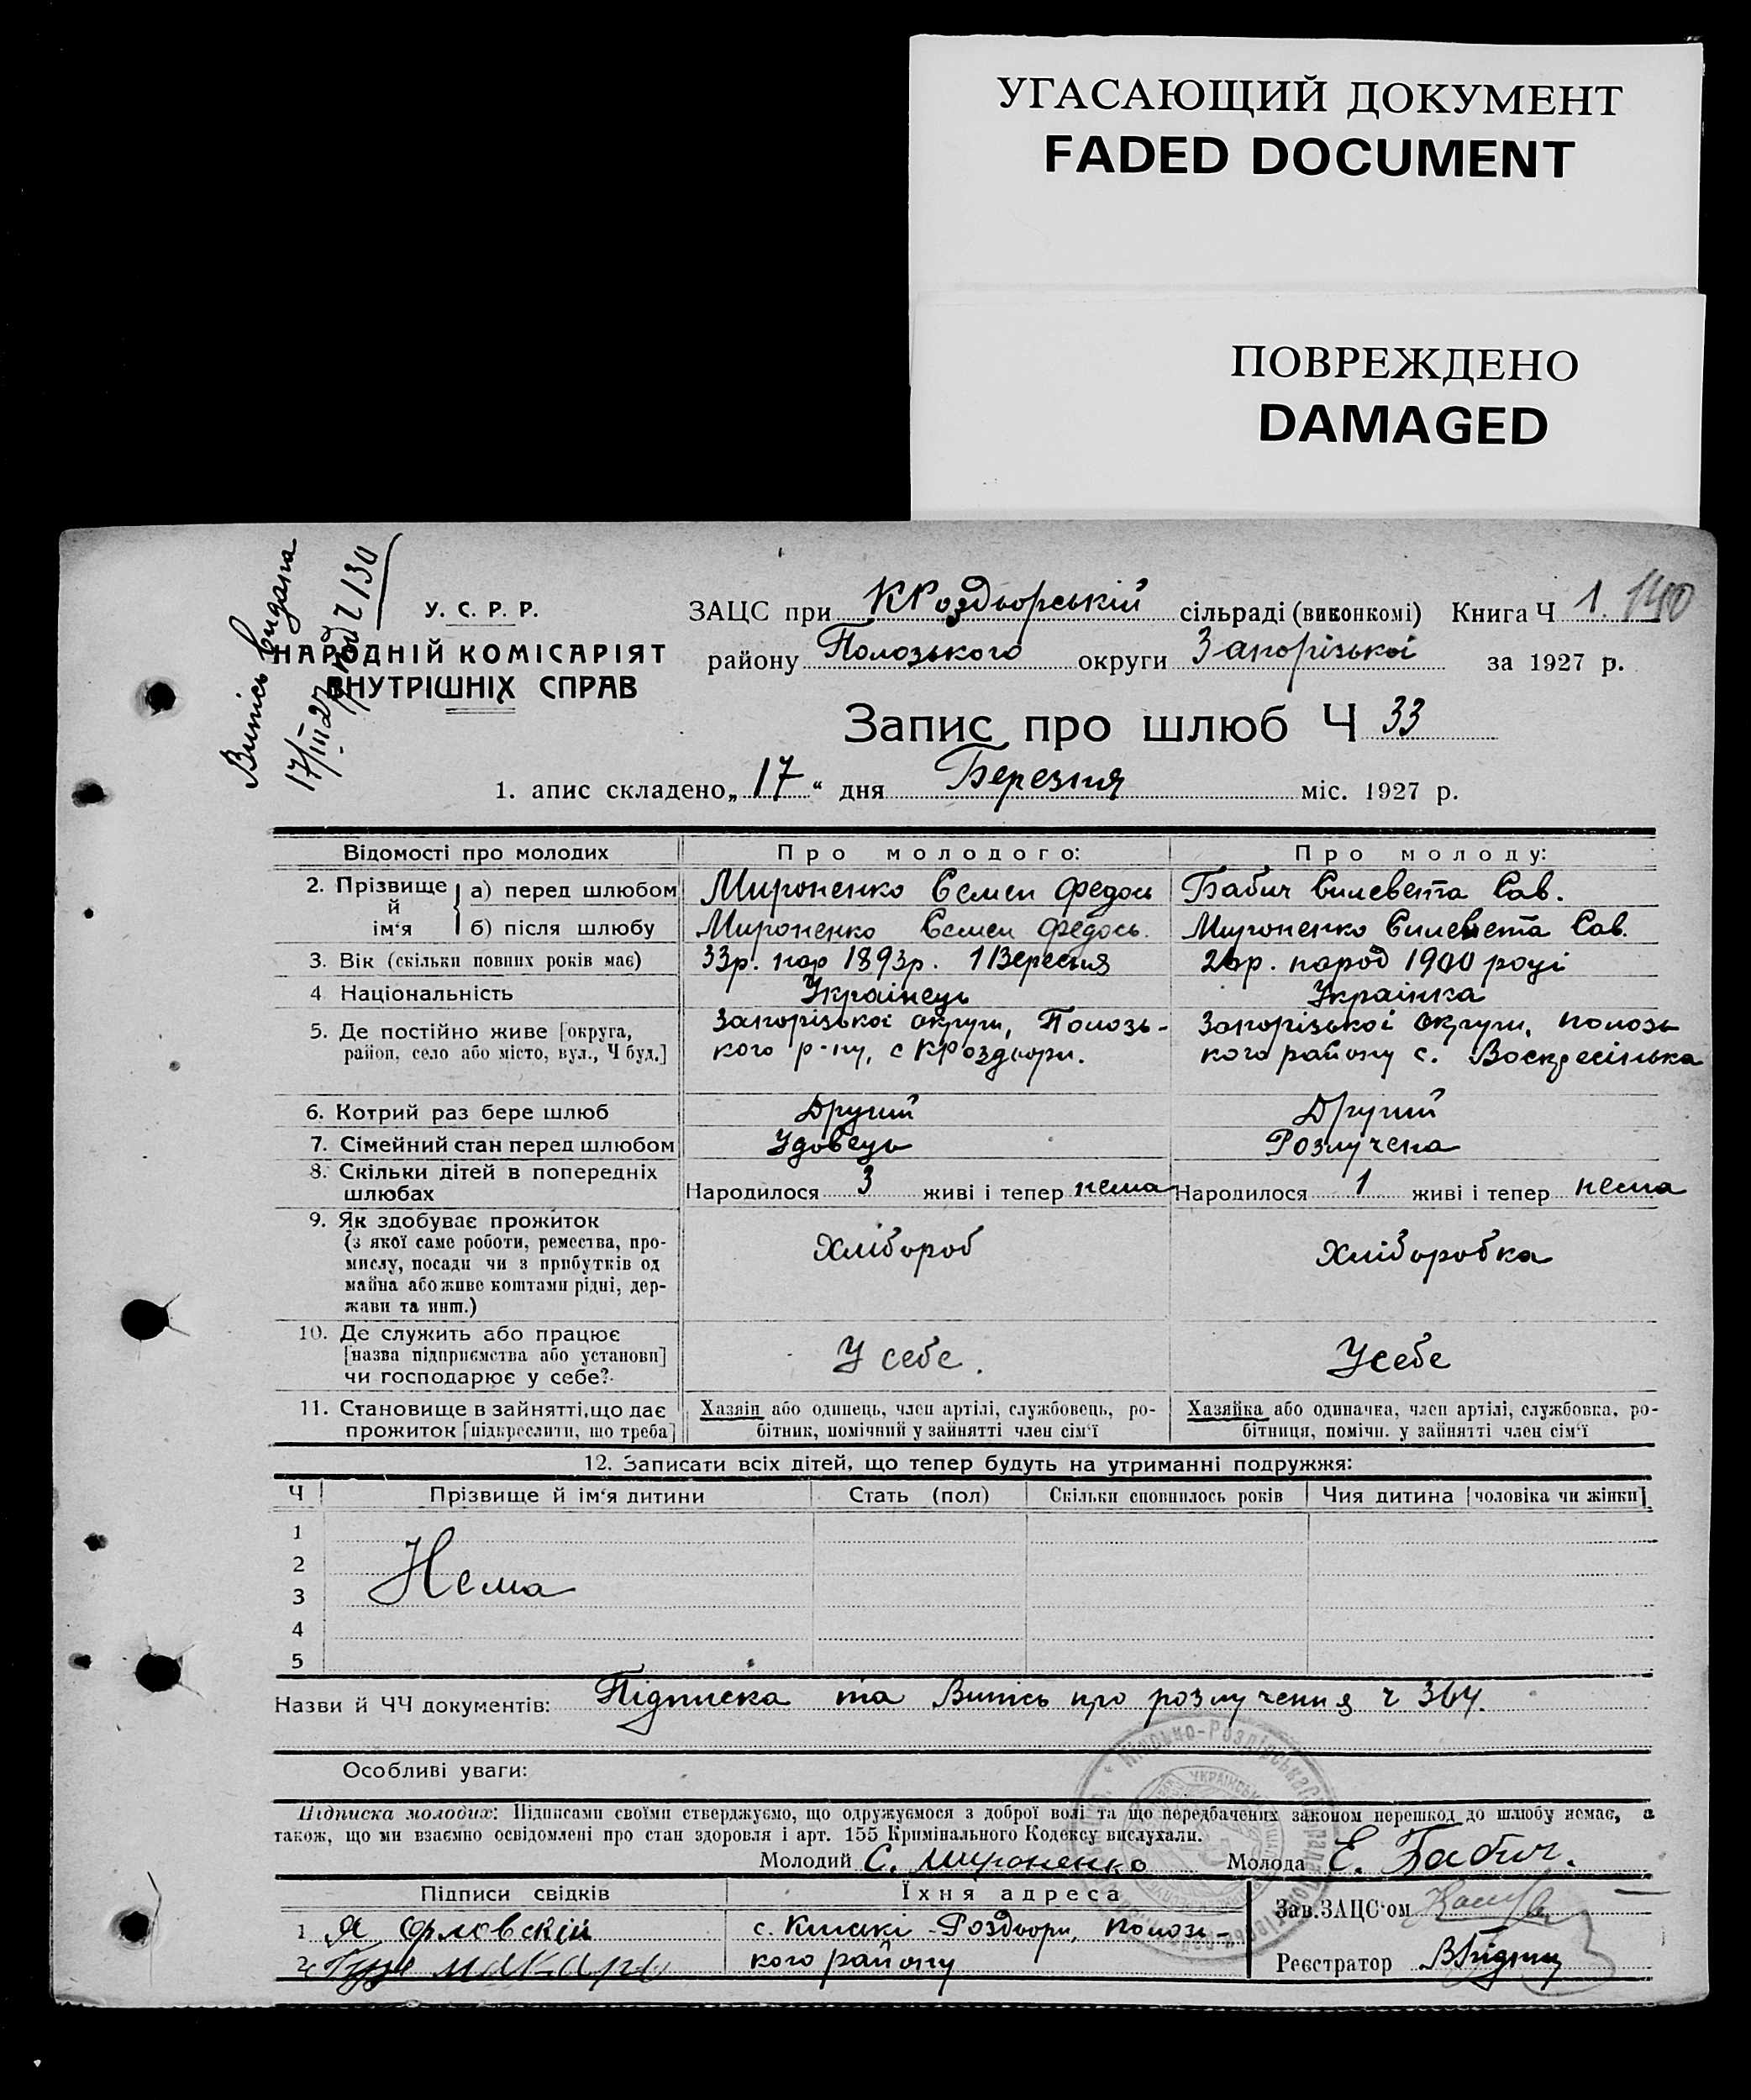 УГАСАЮЩИЙ ДОКУМЕНТ
FADED DOCUMENT
ПОВРЕЖДЕНО
DAMAGED
Випись видана
17/III 27 р. под ч 130
У. С. Р. Р.
НАРОДНІЙ КОМІСАРІЯТ
ВНУТРІШНІХ СПРАВ
ЗАЦС при КРоздорський сільраді (виконкомі) Книга Ч 1. 140
району Полозького округи Запорізької за 1927 р.
Запис про шлюб Ч 33
1. апис складено „17“ дня Березня міс. 1927 р.
Відомості про молодих Про молодого: Про молоду:
2. Прізвище й ім‘я а) перед шлюбом Мироненко Семен Федось Бабич Єлисевета Сав.
б) після шлюбу Мироненко Семен Федось. Мироненко Єлисевета Сав.
3. Вік (скільки повних років має) 33р. нар 1893р. 1 Вересня 26р. народ 1900 році
4 Національність Українець Українка
5. Де постійно живе [округа, Запорізької округи, Полозь- Запорізької округи, полозь
район, село або місто, вул., Ч буд.] кого р-ну, с КРоздори. кого району с. Воскресінька
6. Котрий раз бере шлюб Другий Другий
7. Сімейний стан перед шлюбом Удовець Розлучена
8. Скільки дітей в попередніх
шлюбах Народилося 3 живі і тепер нема Народилося 1 живі і тепер нема
9. Як здобуває прожиток
(з якої саме роботи, ремества, про- Хлібороб Хліборобка
мислу, посади чи з прибутків од
майна або живе коштами рідні, дер-
жави та инш.)
10. Де служить або працює
[назва підприємства або установи] У себе. У себе
чи господарює у себе?
11. Становище в зайнятті, що дає Хазяін або одинець, член артілі, службовець, ро- Хазяйка або одиначка, член артілі, службовка, ро-
прожиток [підкреслити, що треба] бітник, помічний у зайнятті член сім‘ї бітниця, помічн. у зайнятті член сім‘ї
12. Записати всіх дітей, що тепер будуть на утриманні подружжя:
Ч Прізвище й ім‘я дитини Стать (пол) Скільки сповнилось років Чия дитина [чоловіка чи жінки]
1
2
Нема
3
4
5
Назви й ЧЧ документів: Підписка та Випись про розлучення ч 364.
Особливі уваги:
Підписка молодих: Підписами своїми стверджуємо, що одружуємося з доброї волі та що передбачених законом перешкод до шлюбу немає, а
також, що ми взаємно освідомлені про стан здоровля і арт. 155 Кримінального Кодексу вислухали.
Молодий С. Мироненко Молода Е. Бабич.
Підписи свідків Їхня адреса Зав. ЗАЦС‘ом
1 Я Орловскій с. Кінські-Роздори, полозь-
2 Макар кого району Реєстратор